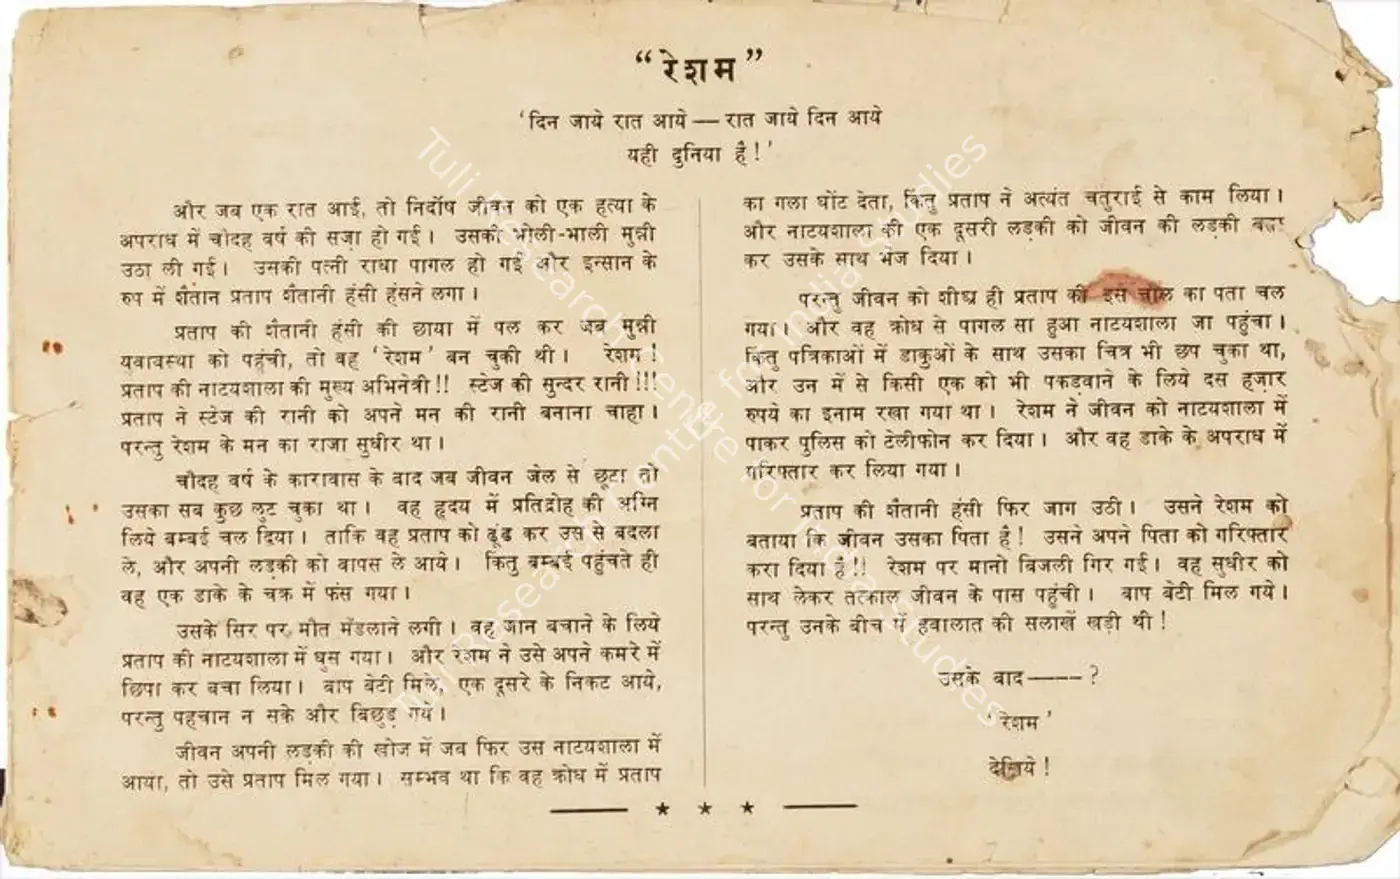 “रेशम”
‘दिन जाये रात आये — रात जाये दिन आये
यही दुनिया है!’
और जब एक रात आई, तो निर्दोष जीवन को एक हत्या के
अपराध में चौदह वर्ष की सज़ा हो गई। उसकी भोली-भाली मुन्नी
उठा ली गई। उसकी पत्नी राधा पागल हो गई और इन्सान के
रुप में शैतान प्रताप शैतानी हंसी हंसने लगा।
प्रताप की शैतानी हंसी की छाया में पल कर जब मुन्नी
यवावस्था को पहुंची, तो वह ‘रेशम’ बन चुकी थी। रेशम!
प्रताप की नाटयशाला की मुख्य अभिनेत्री!! स्टेज की सुन्दर रानी!!!
प्रताप ने स्टेज की रानी को अपने मन की रानी बनाना चाहा।
परन्तु रेशम के मन का राजा सुधीर था।
चौदह वर्ष के कारावास के बाद जब जीवन जेल से छूटा तो
उसका सब कुछ लुट चुका था। वह हृदय में प्रतिद्रोह की अग्नि
लिये बम्बई चल दिया। ताकि वह प्रताप को ढूंढ कर उस से बदला
ले, और अपनी लड़की को वापस ले आये। किंतु बम्बई पहुंचते ही
वह एक डाके के चक्र में फंस गया।
उसके सिर पर मौत मंडलाने लगी। वह जान बचाने के लिये
प्रताप की नाटयशाला में घुस गया। और रेशम ने उसे अपने कमरे में
छिपा कर बचा लिया। बाप बेटी मिले, एक दूसरे के निकट आये,
परन्तु पहचान न सके और बिछुड़ गये।
जीवन अपनी लड़की की खोज में जब फिर उस नाटयशाला में
आया, तो उसे प्रताप मिल गया। सम्भव था कि वह क्रोध में प्रताप
का गला घोंट देता, किंतु प्रताप ने अत्यंत चतुराई से काम लिया।
और नाटयशाला की एक दूसरी लड़की को जीवन की लड़की बता
कर उसके साथ भेज दिया।
परन्तु जीवन को शीघ्र ही प्रताप की इस चाल का पता चल
गया। और वह क्रोध से पागल सा हुआ नाटयशाला जा पहुंचा।
किंतु पत्रिकाओं में डाकुओं के साथ उसका चित्र भी छप चुका था,
और उन में से किसी एक को भी पकड़वाने के लिये दस हज़ार
रुपये का इनाम रखा गया था। रेशम ने जीवन को नाटयशाला में
पाकर पुलिस को टेलीफोन कर दिया। और वह डाके के अपराध में
गरिफ्तार कर लिया गया।
प्रताप की शैतानी हंसी फिर जाग उठी। उसने रेशम को
बताया कि जीवन उसका पिता है! उसने अपने पिता को गरिफ्तार
करा दिया है!! रेशम पर मानो बिजली गिर गई। वह सुधीर को
साथ लेकर तत्काल जीवन के पास पहुंची। बाप बेटी मिल गये।
परन्तु उनके बीच में हवालात की सलाखें खड़ी थी!
उसके बाद ————?
‘रेशम’
देखिये!
Tuli Research Centre for India Studies
Tuli Research Centre for India Studies